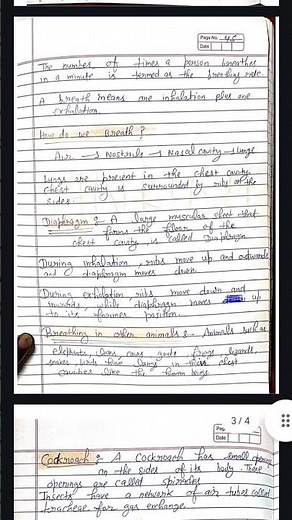 Page No. 45
Date
The number of times a person breathes
in a minute is termed as the breathing rate.
A breath means one inhalation plus one
exhalation.
How do we Breath?
Air → Nostrils → Nasal cavity → lungs
Lungs are present in the chest cavity
chest cavity is surrounded by ribs on the
sides.
Diaphragm :- A large muscular sheet that
forms the floor of the
chest cavity, is called Diaphragm
During inhalation, ribs move up and outwards
and diaphragm moves down.
During exhalation ribs move down and
inwards while diaphragm moves up
to its former position.
Breathing in other animals :- Animals such as
elephants, lions, cows, goats, frogs, lizards,
snakes, birds have lungs in their chest
cavities like the human beings
3 / 4
Page
Date
Cockroach :- A Cockroach has small openings
on the sides of its body. These
openings are called spiracles
Insects have a network of air tubes called
tracheae for gas exchange.